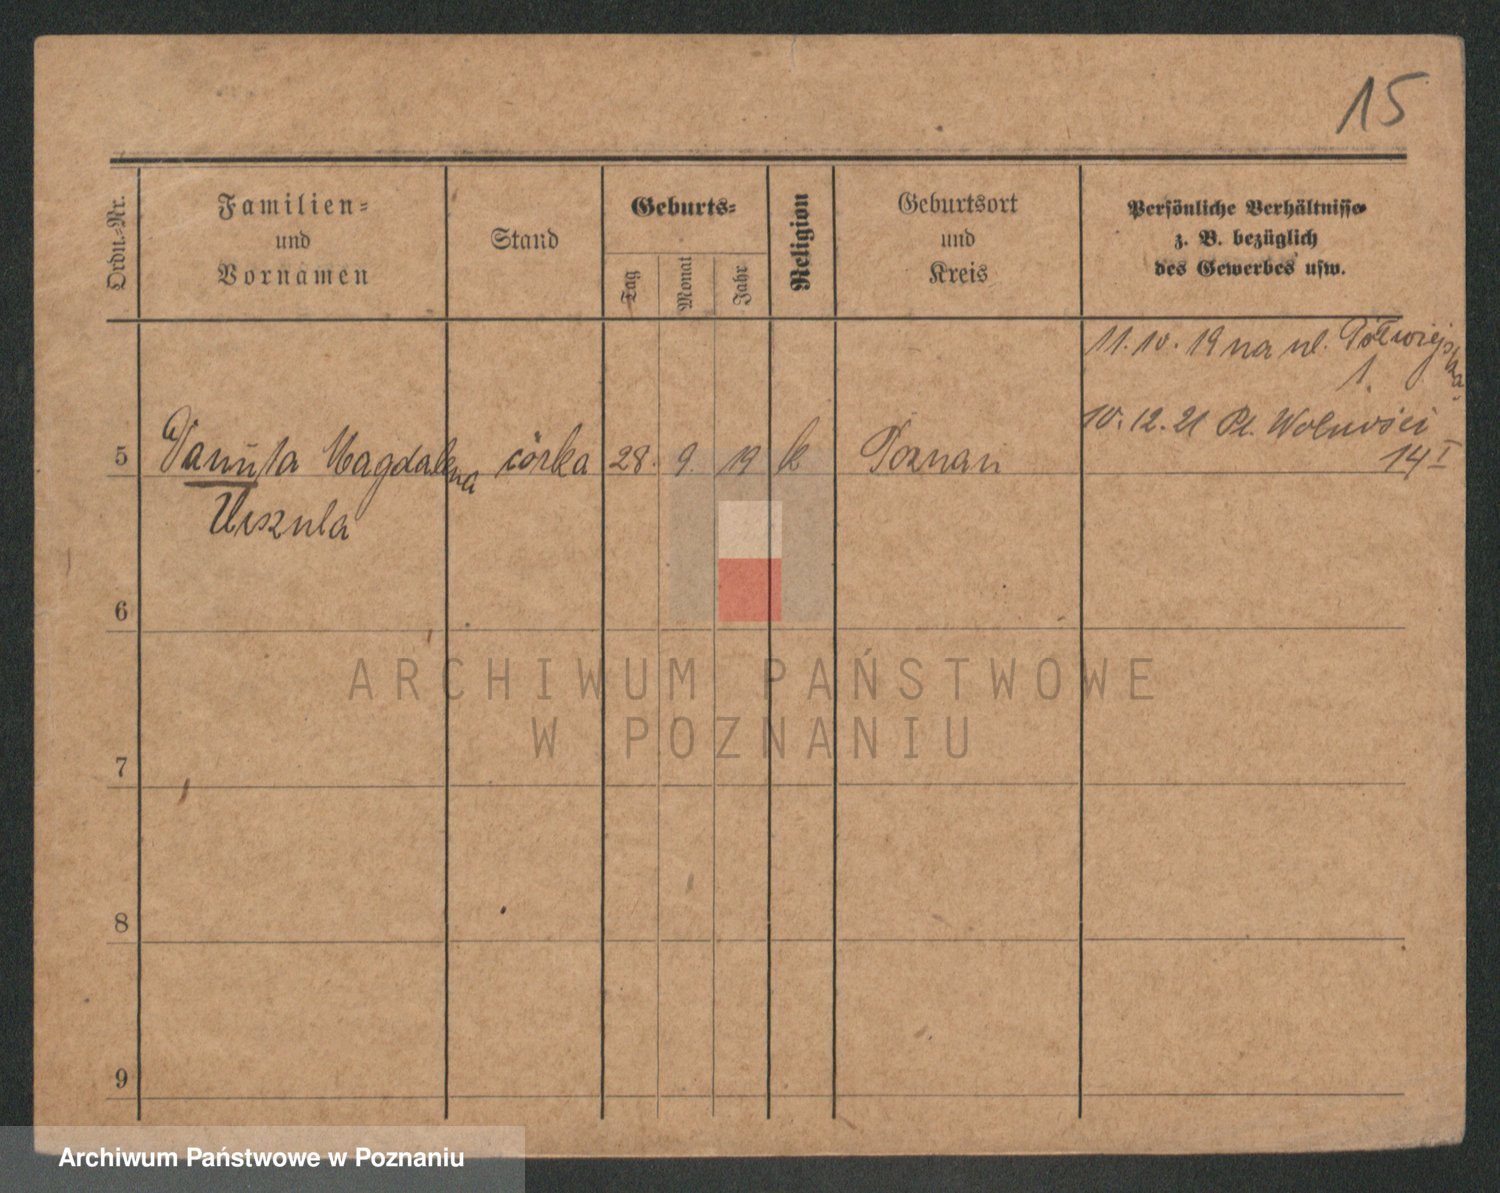 15
Ordn.-Nr.
Familien-
und
Vornamen
Stand
Geburts-
Tag
Monat
Jahr
Religion
Geburtsort
und
Kreis
Persönliche Verhältnisse
z. B. bezüglich
des Gewerbes usw.
11. 10. 19 na ul. Półwiejska
1.
10. 12. 21 Pl. Wolności
14 I
5 Danuta Magdalena córka 28. 9. 19 k Poznań
Urszula
6
ARCHIWUM PAŃSTWOWE
W POZNANIU
7
8
9
Archiwum Państwowe w Poznaniu